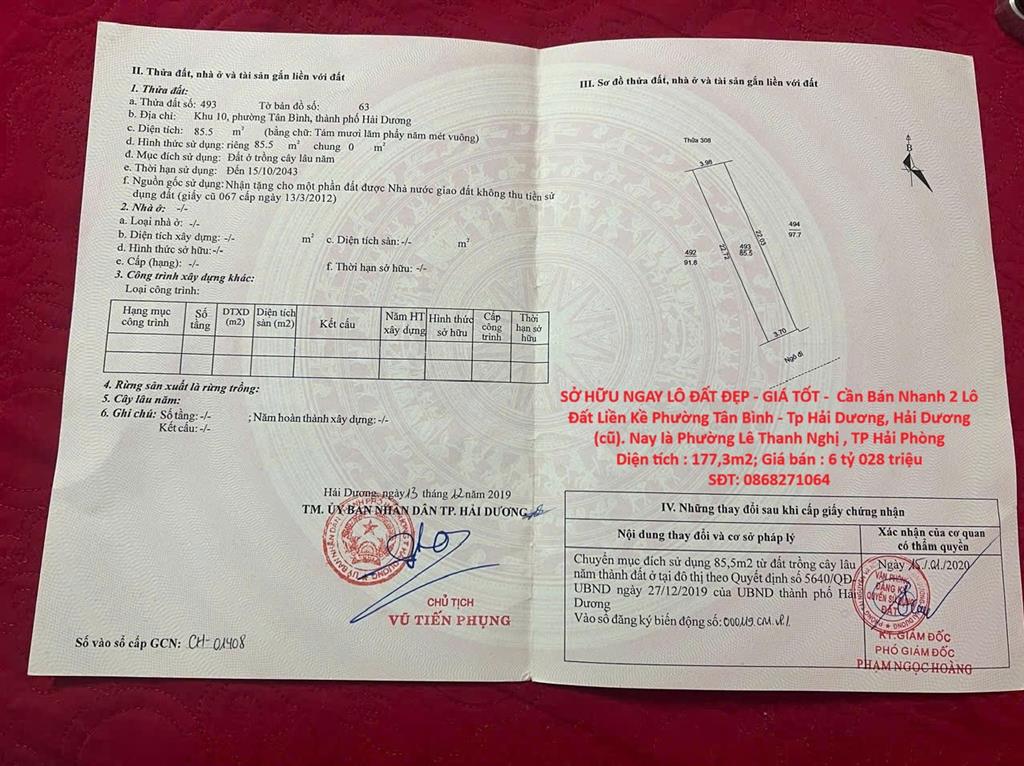 II. Thửa đất, nhà ở và tài sản gắn liền với đất
1. Thửa đất:
a. Thửa đất số: 493 Tờ bản đồ số: 63
b. Địa chỉ: Khu 10, phường Tân Bình, thành phố Hải Dương
c. Diện tích: 85.5 m² (bằng chữ: Tám mươi lăm phẩy năm mét vuông)
d. Hình thức sử dụng: riêng 85.5 m² chung 0 m²
đ. Mục đích sử dụng: Đất ở trồng cây lâu năm
e. Thời hạn sử dụng: Đến 15/10/2043
f. Nguồn gốc sử dụng: Nhận tặng cho một phần đất được Nhà nước giao đất không thu tiền sử
dụng đất (giấy cũ 067 cấp ngày 13/3/2012)
2. Nhà ở: -/-
a. Loại nhà ở: -/-
b. Diện tích xây dựng: -/- m² c. Diện tích sàn: -/- m²
d. Hình thức sở hữu: -/-
e. Cấp (hạng): -/- f. Thời hạn sở hữu: -/-
3. Công trình xây dựng khác:
Loại công trình:
Hạng mục công trình Số tầng DTXD (m2) Diện tích sàn (m2) Kết cấu Năm HT xây dựng Hình thức sở hữu Cấp công trình Thời hạn sở hữu
4. Rừng sản xuất là rừng trồng:
5. Cây lâu năm:
6. Ghi chú: Số tầng: -/- ; Năm hoàn thành xây dựng: -/-
Kết cấu: -/-
Hải Dương, ngày 13 tháng 12 năm 2019
TM. ỦY BAN NHÂN DÂN TP. HẢI DƯƠNG
CHỦ TỊCH
VŨ TIẾN PHỤNG
Số vào sổ cấp GCN: CH-01408
III. Sơ đồ thửa đất, nhà ở và tài sản gắn liền với đất
Thửa 308
B
3.98
494
97.7
22.03
493
85.5
22.72
492
91.8
3.70
Ngõ đi
SỞ HỮU NGAY LÔ ĐẤT ĐẸP - GIÁ TỐT - Cần Bán Nhanh 2 Lô
Đất Liền Kề Phường Tân Bình - Tp Hải Dương, Hải Dương
(cũ). Nay là Phường Lê Thanh Nghị , TP Hải Phòng
Diện tích : 177,3m2; Giá bán : 6 tỷ 028 triệu
SĐT: 0868271064
IV. Những thay đổi sau khi cấp giấy chứng nhận
Nội dung thay đổi và cơ sở pháp lý
Xác nhận của cơ quan
có thẩm quyền
Chuyển mục đích sử dụng 85,5m2 từ đất trồng cây lâu
năm thành đất ở tại đô thị theo Quyết định số 5640/QĐ-
UBND ngày 27/12/2019 của UBND thành phố Hải
Dương
Vào sổ đăng ký biến động số: 00019.CM.
Ngày 15/01/2020
VĂN PHÒNG
ĐĂNG KÝ
QUYỀN SỬ DỤNG
ĐẤT
KT.GIÁM ĐỐC
PHÓ GIÁM ĐỐC
PHẠM NGỌC HOÀNG